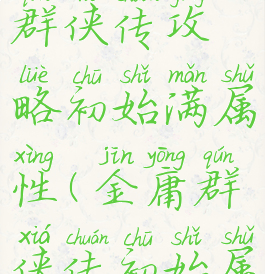 群侠传攻
lüè chū shǐ mǎn shǔ
略初始满属
xìng jīn yōng qún
性(金庸群
xiá chuán chū shǐ shǔ
侠传初始属